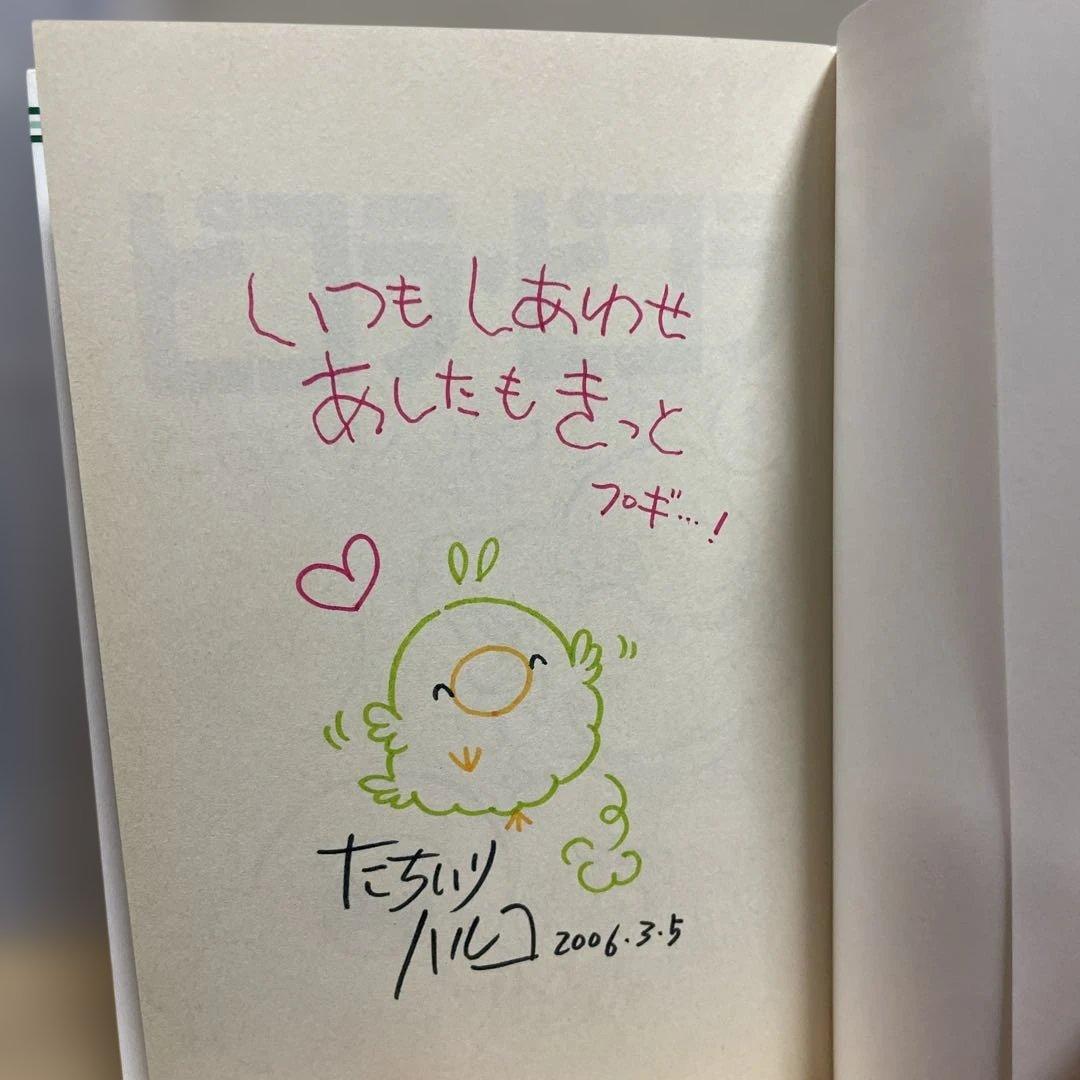 いつも しあわせ
あしたも きっと
フロギ…!
たちいり
ハルコ 2006.3.5